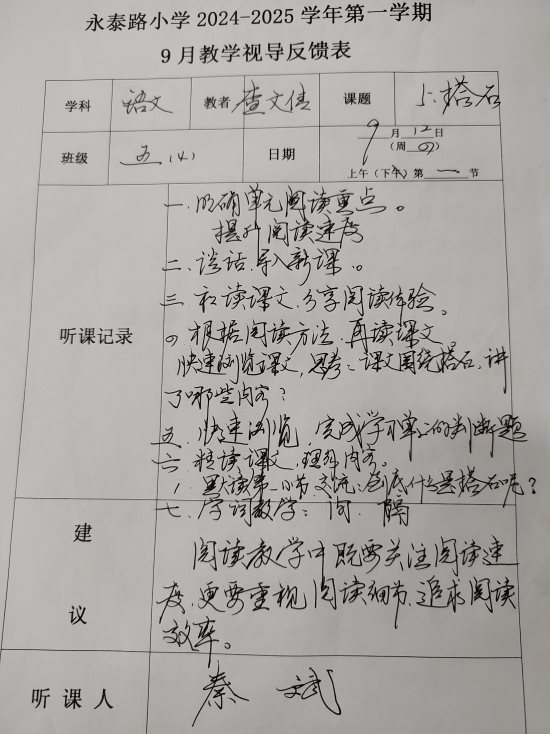 永泰路小学 2024-2025 学年第一学期
9 月教学视导反馈表
学科 语文 教者 查文佳 课题 5.搭石
班级 五(4) 日期 9月12日
(周四)
上午(下午)第一节
听课记录
一、明确单元阅读重点。
提升阅读速度
二、谈话,导入新课。
三、初读课文,分享阅读体验。
四、根据阅读方法,再读课文。
快速浏览课文,思考:课文围绕搭石,讲
了哪些内容?
五、快速浏览,完成学习单上的判断题
六、精读课文,理解内容。
1、默读第一小节交流:到底什么是搭石呢?
七、字词教学:间 隔
建议
阅读教学中既要关注阅读速
度,更要重视阅读细节,追求阅读
效率。
听课人 秦斌